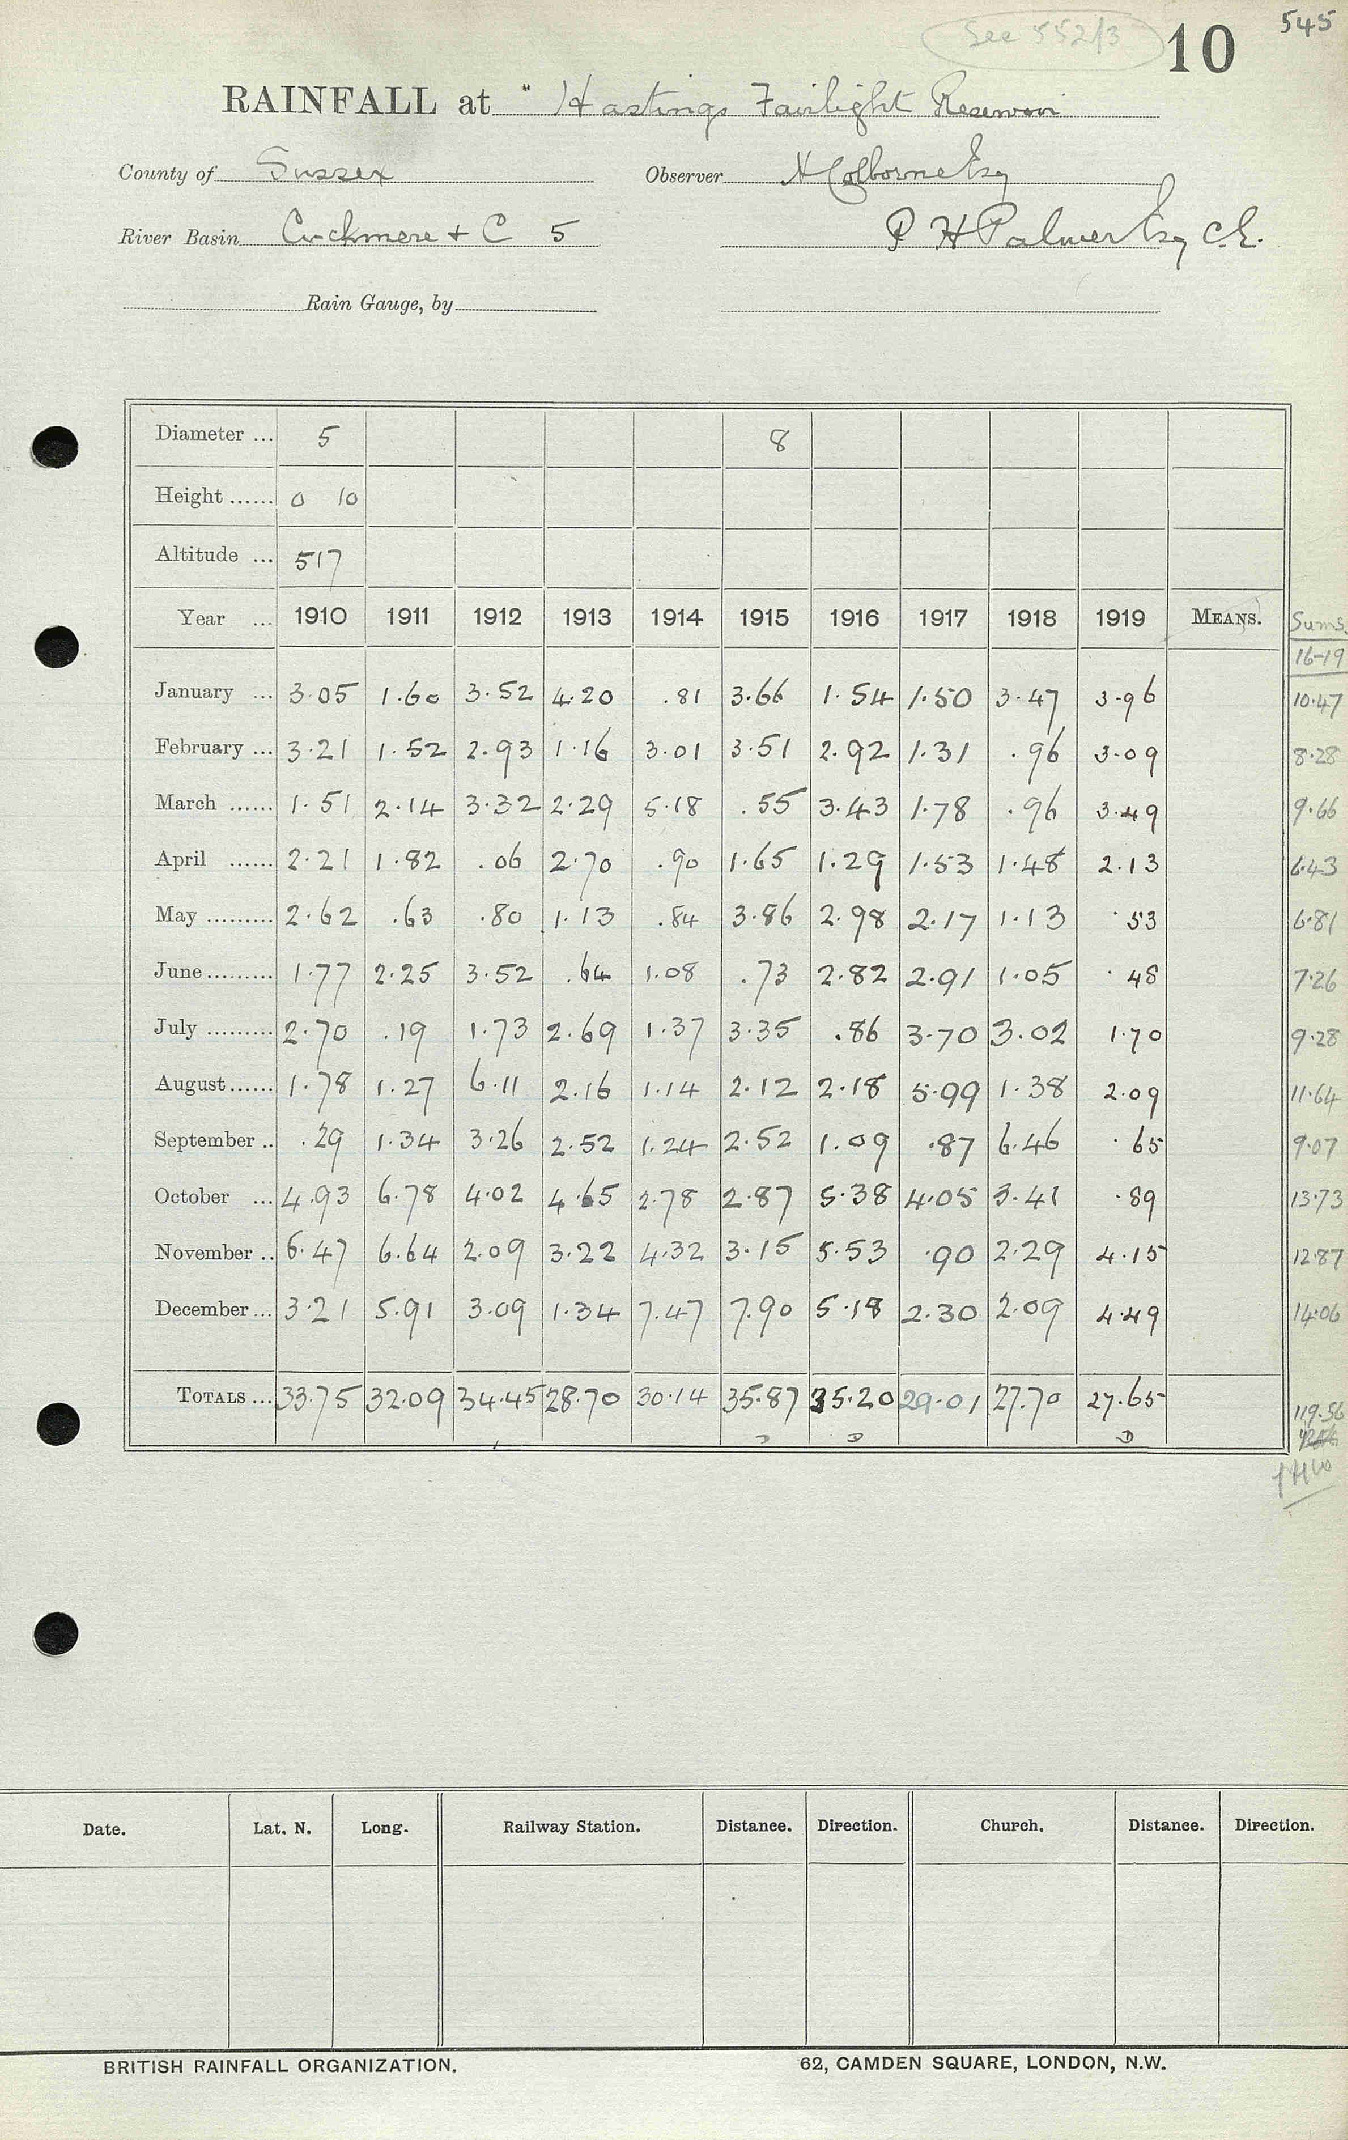 See 552/3 10 545
RAINFALL at Hastings Fairlight Reservoir
County of Sussex Observer H Colborne Esq
River Basin Cuckmere + C 5 P H Palmer Esq C.E.
Rain Gauge, by
Diameter ... 5 8
Height ...... 0 10
Altitude ... 517
Year ... 1910 1911 1912 1913 1914 1915 1916 1917 1918 1919 MEANS. Sums
16-19
January ... 3.05 1.60 3.52 4.20 .81 3.66 1.54 1.50 3.47 3.96 10.47
February ... 3.21 1.52 2.93 1.16 3.01 3.51 2.92 1.31 .96 3.09 8.28
March ...... 1.51 2.14 3.32 2.29 5.18 .55 3.43 1.78 .96 3.49 9.66
April ...... 2.21 1.82 .06 2.70 .90 1.65 1.29 1.53 1.48 2.13 6.43
May ......... 2.62 .63 .80 1.13 .84 3.86 2.98 2.17 1.13 .53 6.81
June ......... 1.77 2.25 3.52 .64 1.08 .73 2.82 2.91 1.05 .48 7.26
July ......... 2.70 .19 1.73 2.69 1.37 3.35 .86 3.70 3.02 1.70 9.28
August ...... 1.78 1.27 6.11 2.16 1.14 2.12 2.18 5.99 1.38 2.09 11.64
September .. .29 1.34 3.26 2.52 1.24 2.52 1.09 .87 6.46 .65 9.07
October ... 4.93 6.78 4.02 4.65 2.78 2.87 5.38 4.05 3.41 .89 13.73
November .. 6.47 6.64 2.09 3.22 4.32 3.15 5.53 .90 2.29 4.15 12.87
December ... 3.21 5.91 3.09 1.34 7.47 7.90 5.18 2.30 2.09 4.49 14.06
TOTALS ... 33.75 32.09 34.45 28.70 30.14 35.87 35.20 29.01 27.70 27.65 119.56
Date. Lat. N. Long. Railway Station. Distance. Direction. Church. Distance. Direction.
BRITISH RAINFALL ORGANIZATION. 62, CAMDEN SQUARE, LONDON, N.W.